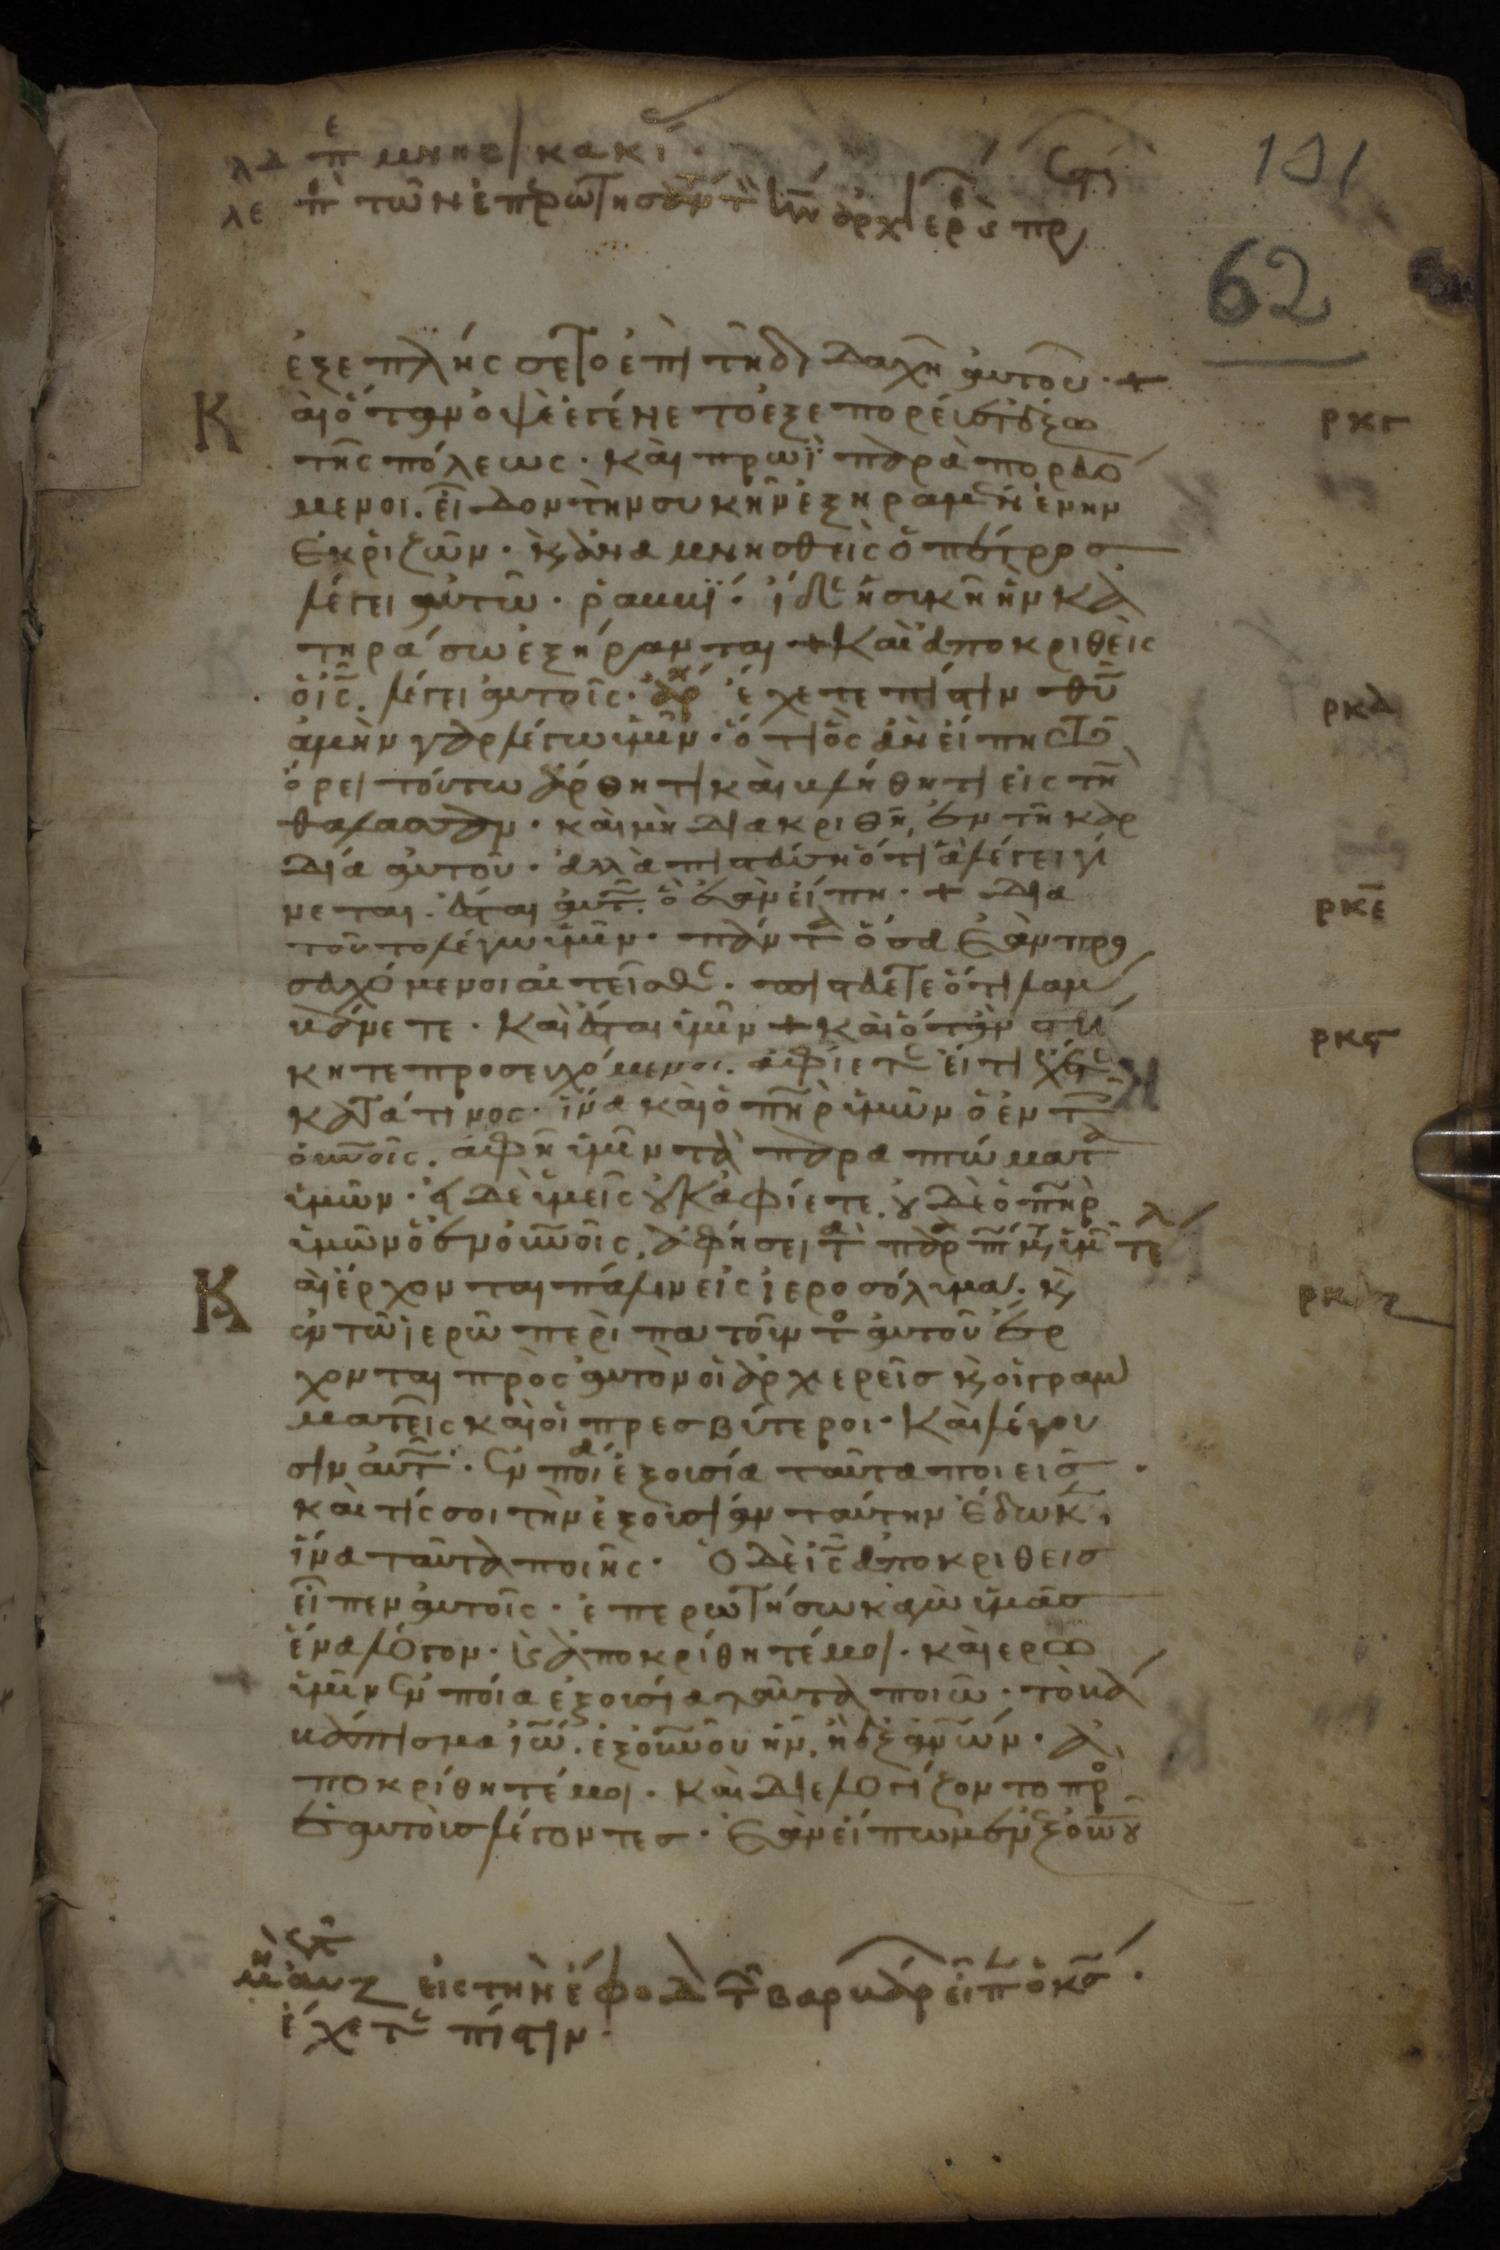 λδ πε μνησικακι
λε πε των επρωτησαντ κν αρχιερ κ πρ
191
62
ἐξεπλήσσετο ἐπὶ τῆ διδαχῆ αὐτοῦ · +
Κ αὶ ὅταν ὀψὲ ἐγένετο ἐξεπορεύετο ἔξω
ρκγ
τῆς πόλεως · καὶ πρωῒ παραπορευό
μενοι. εἶδον τὴν συκῆν ἐξηραμμένην
ἐκ ριζῶν · κ ἀναμνησθεὶς ὁ πέτρος
λέγει αὐτῶ · ραββΐ · ἴδε ἡ συκῆ ἣν κα
τηράσω ἐξήρανται + Καὶ ἀποκριθεὶς
ὁ ις. λέγει αὐτοῖς · ἔχετε πίστιν θυ
ρκδ
ἀμὴν γὰρ λέγω ὑμῖν · ὅτι ὃς ἂν εἴπη τῶ
ὄρει τούτω ἄρθητι καὶ βλήθητι εἰς τὴν
θάλασσαν · καὶ μὴ διακριθῆ, ἐν τῆ καρ
δία αὐτοῦ · ἀλλὰ πιστεύση ὅτι ἃ λέγει γί
νεται · ἔσται αὐτῶ ὃ ἐὰν εἴπη · + Δια
ρκε
τοῦτο λέγω ὑμῖν · πάντα ὅσα ἐὰν προ
σευχόμενοι αἰτεῖσθε · πιστεύετε ὅτι λαμ
βάνετε · καὶ ἔσται ὑμῖν + καὶ ὅταν στή
ρκϛ
κητε προσευχόμενοι. ἀφίετε εἴ τι ἔχετε
κατά τινος · ἵνα καὶ ὁ πηρ ὑμῶν ὁ ἐν τοῖς
οὐνοις. ἀφῆ ὑμῖν τὰ παραπτώματα
ὑμῶν · εἰ δὲ ὑμεῖς οὐκ ἀφίετε. οὐδὲ ὁ πηρ
ὑμῶν ὁ ἐν οὐνοις. ἀφήσει τὰ παραπτ ὑμ τε λ
Κ αὶ ἔρχονται πάλιν εἰς ἱεροσόλυμα. κ
ρκζ
ἐν τῶ ἱερῶ περιπατοῦντος αὐτοῦ ἔρ
χονται πρὸς αὐτὸν οἱ ἀρχιερεῖς κ οἱ γραμ
ματεῖς καὶ οἱ πρεσβύτεροι · Καὶ λέγου
σιν αὐτῶ · ἐν ποία ἐξουσία ταῦτα ποιεις ·
καὶ τίς σοι τὴν ἐξουσίαν ταύτην ἔδωκεν,
ἵνα ταῦτα ποιῆς · Ὁ δὲ ις ἀποκριθεις
εἶπεν αὐτοῖς · ἐπερωτήσω κἀγὼ ὑμᾶς
ἕνα λόγον · κ ἀποκρίθητέ μοι · καὶ ερω
ὑμῖν ἐν ποία ἐξουσία ταῦτα ποιῶ · τὸ βά
πτισμα ἰω. ἐξ οὐνοῦ ἦν, ἢ ἐξ ἀνων · ἀ
ποκρίθητέ μοι · καὶ διελογίζοντο προς
ἑαυτοὺς λέγοντες · Ἐὰν εἴπωμεν ἐξ οὐνου
εἰς τὴν ἔφοδ τῶν βαρβάρ εἶπ ὁ κς ·
ἔχετε πίστιν ·